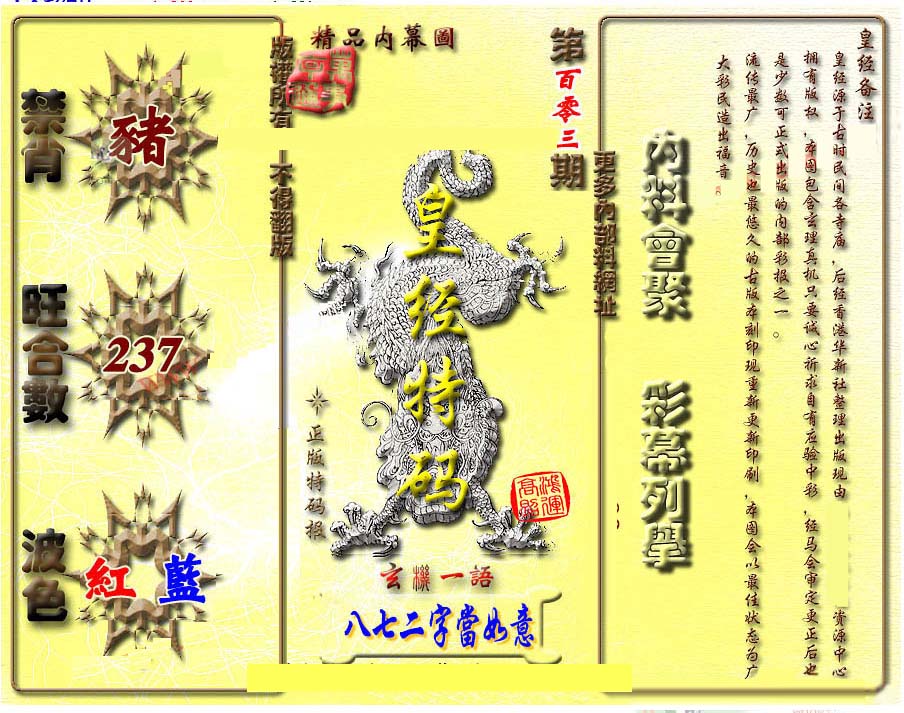 精品内幕圖
第百零三期
版權所有
不得翻版
禁肖
豬
旺合數
237
波色
紅 藍
皇经特码
正版特码报
鴻運高照
玄機一語
八七二字當如意
更多內部料網址
內料會聚
彩幕列舉
皇经备注
皇经源于古时民间各寺庙,后经香港华新社整理出版现由
资源中心
拥有版权,本图包含玄理真机只要诚心祈求自有应验中彩,经马会审定更正后也
是少数可正式出版的内部彩报之一。
流传最广,历史也最悠久的古版本刻印现重新更新印刷,本图会以最佳状态为广
大彩民造出福音